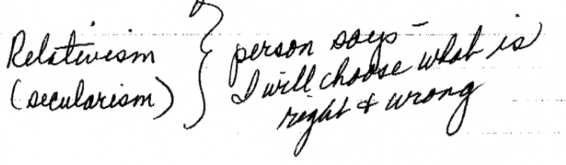 Relativism
(secularism)
person says –
I will choose what is
right & wrong